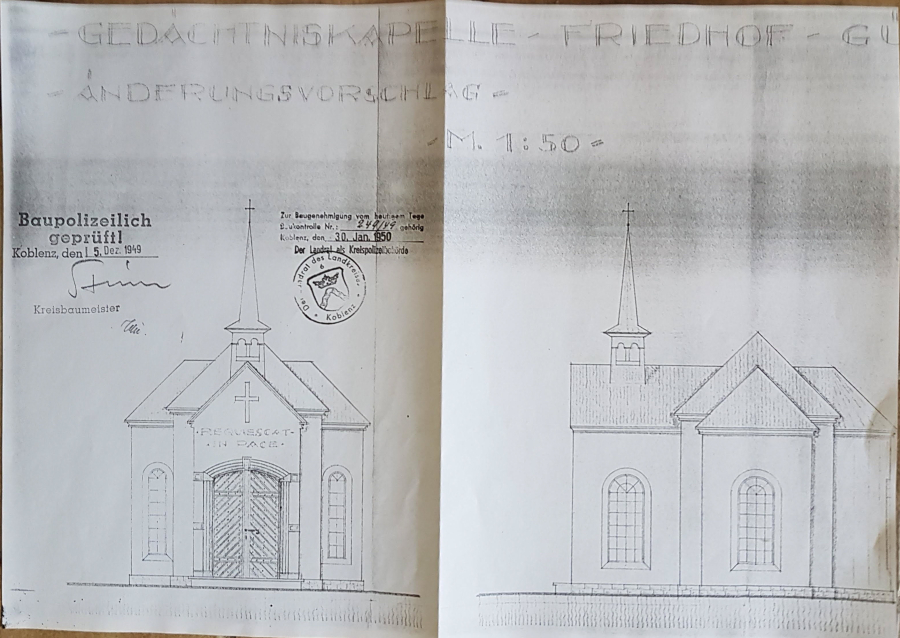 - GEDÄCHTNISKAPELLE - FRIEDHOF - GÜ
- ÄNDERUNGSVORSCHLAG -
- M. 1:50 -
Baupolizeilich
geprüft!
Koblenz, den 15. Dez. 1949
Kreisbaumeister
Zur Baugenehmigung vom heutigem Tage
Baukontrolle Nr.: 249/49 gehörig
Koblenz, den 30. Jan. 1950
Der Landrat als Kreispolizeibehörde
Der Landrat des Landkreises
* Koblenz *
· REQUIESCAT ·
· IN PACE ·